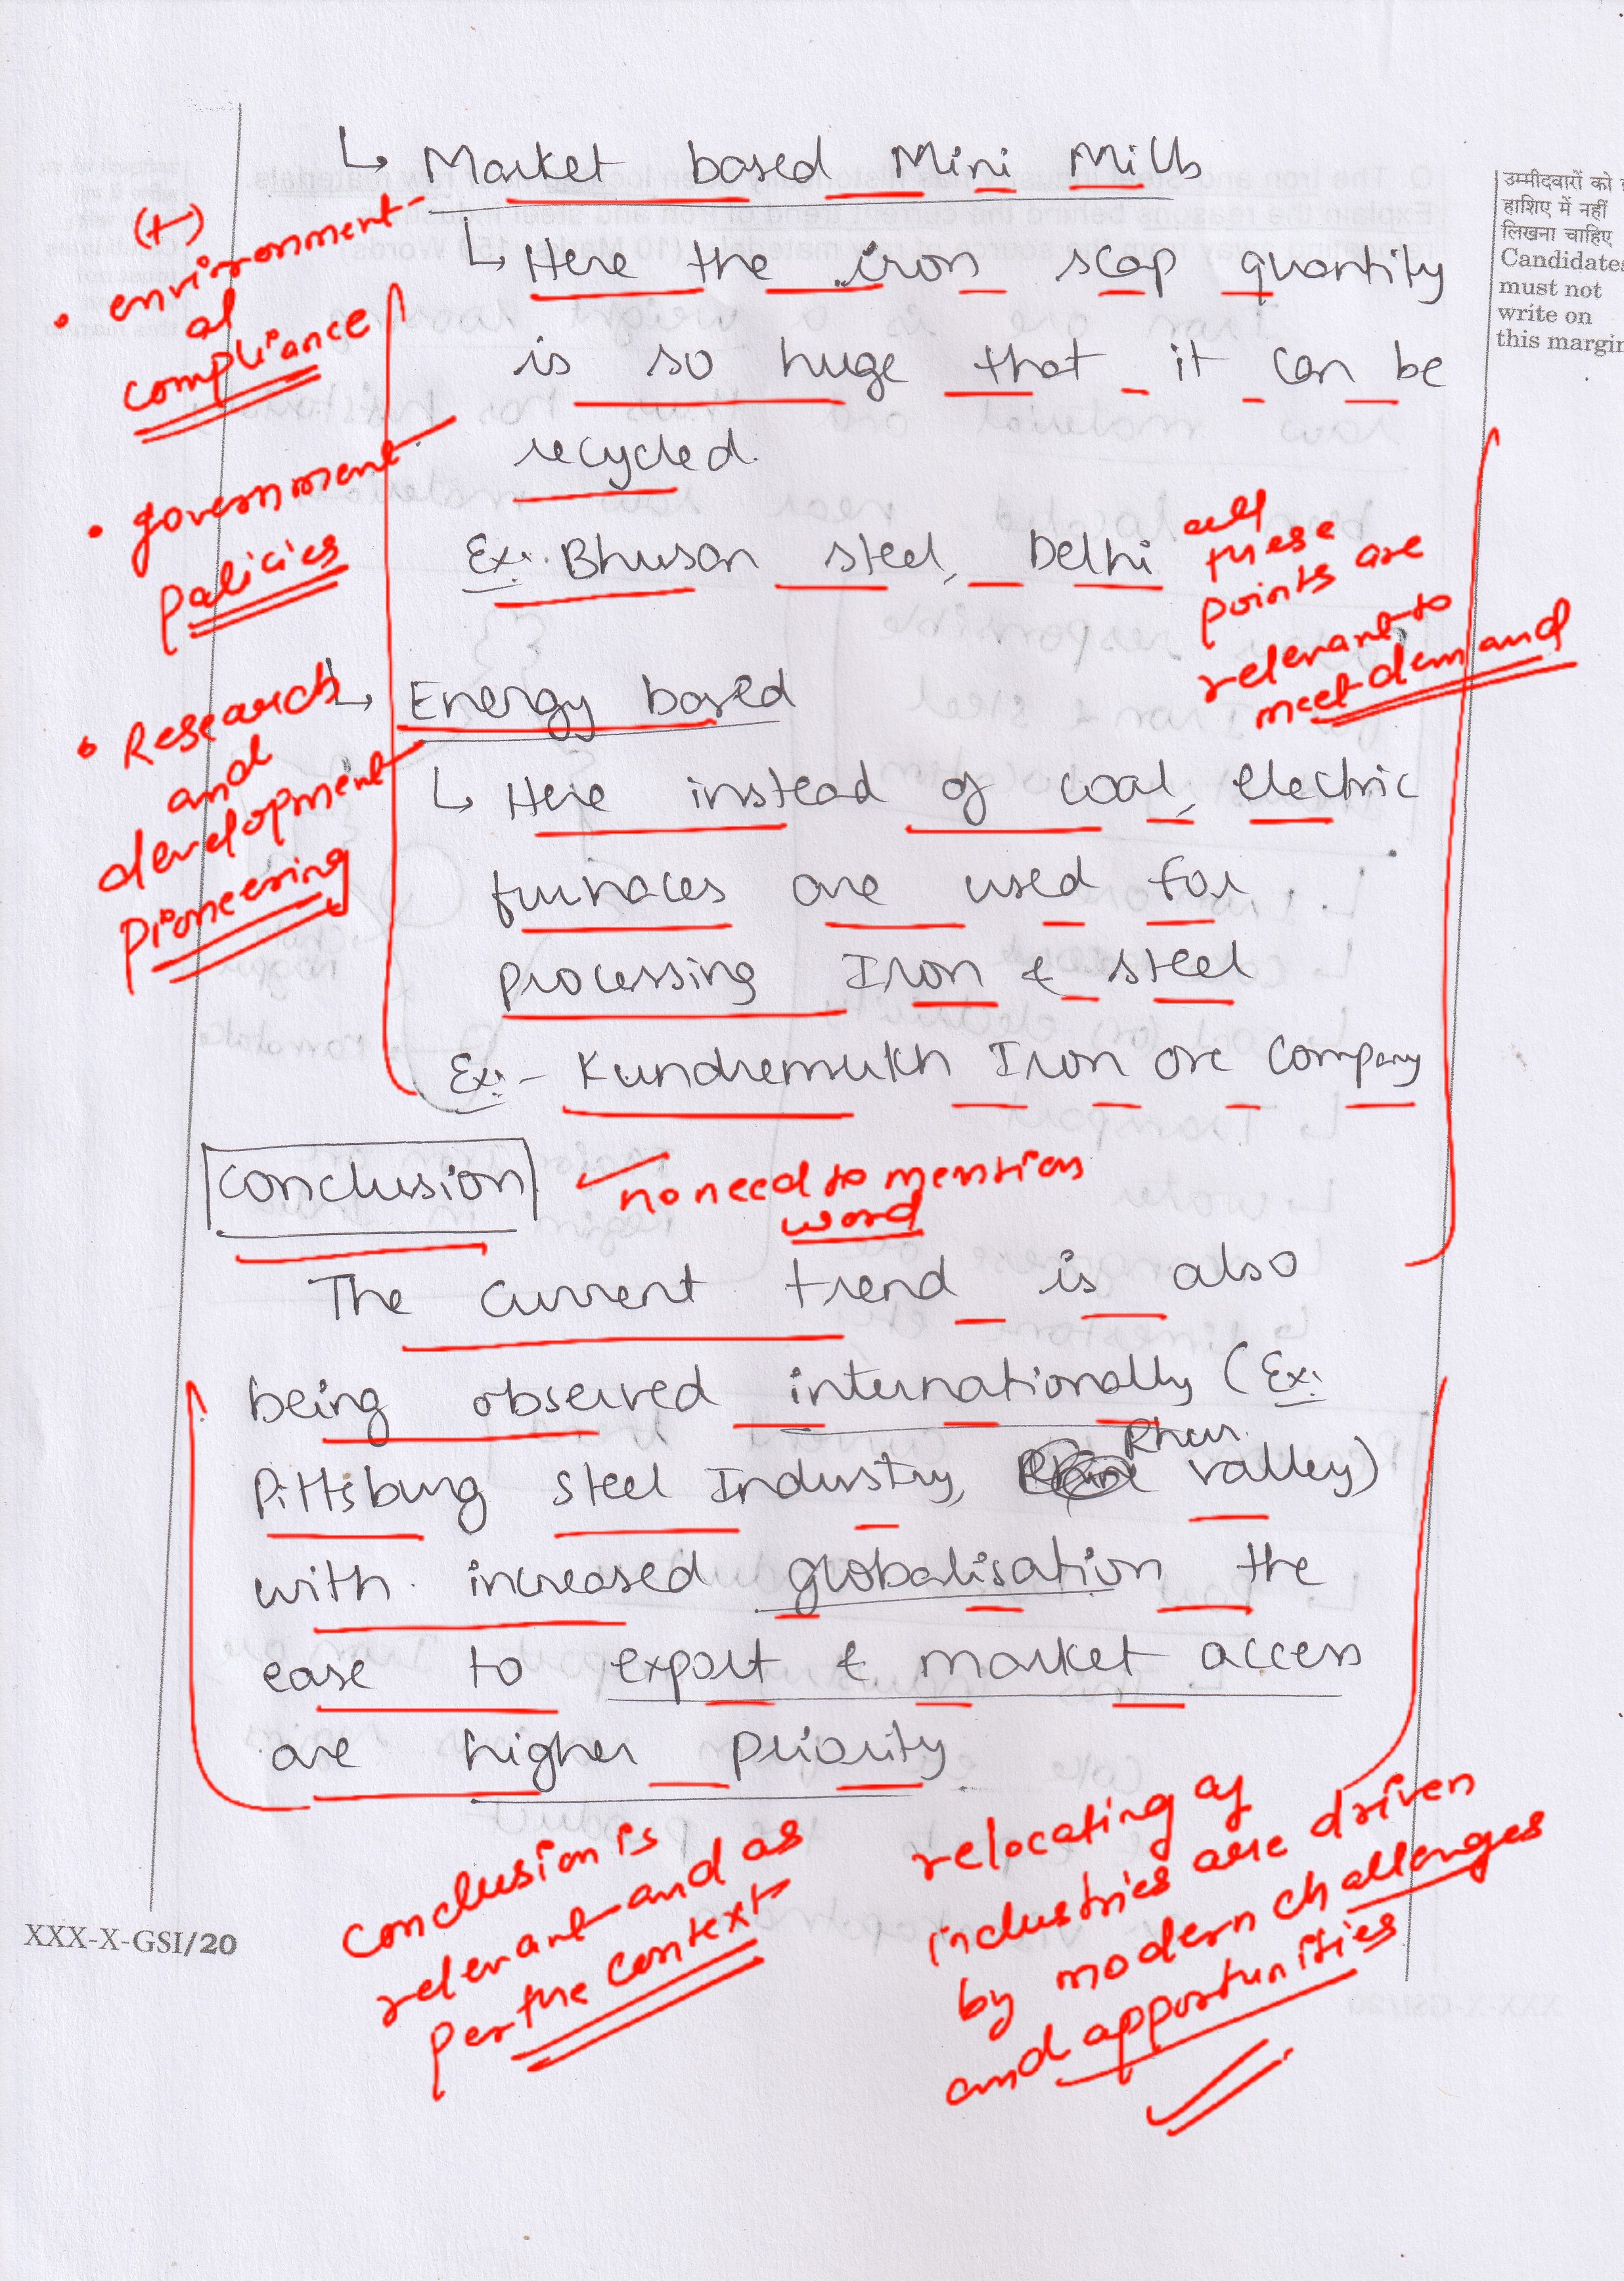 ↳ Market based Mini Mills
↳ Here the iron scap quantity
is so huge that it can be
recycled.
Ex:- Bhusan steel, Delhi
↳ Energy based
↳ Here instead of coal, electric
furnaces are used for
processing Iron & steel
Ex:- Kundremukh Iron ore Company
Conclusion
The current trend is also
being observed internationally (Ex:
Pittsburg steel Industry, Rhur valley)
with increased globalisation the
ease to export & market access
are higher priority
(+)
• environment-
al
compliance
• government
policies
• Research
and
development
pioneering
all
these
points are
relevant to
meet demand
no need to mention
word
Conclusion is
relevant and as
per the context
relocating of
industries are driven
by modern challenges
and opportunities
उम्मीदवारों को
हाशिए में नहीं
लिखना चाहिए
Candidates
must not
write on
this margin
XXX-X-GSI/20